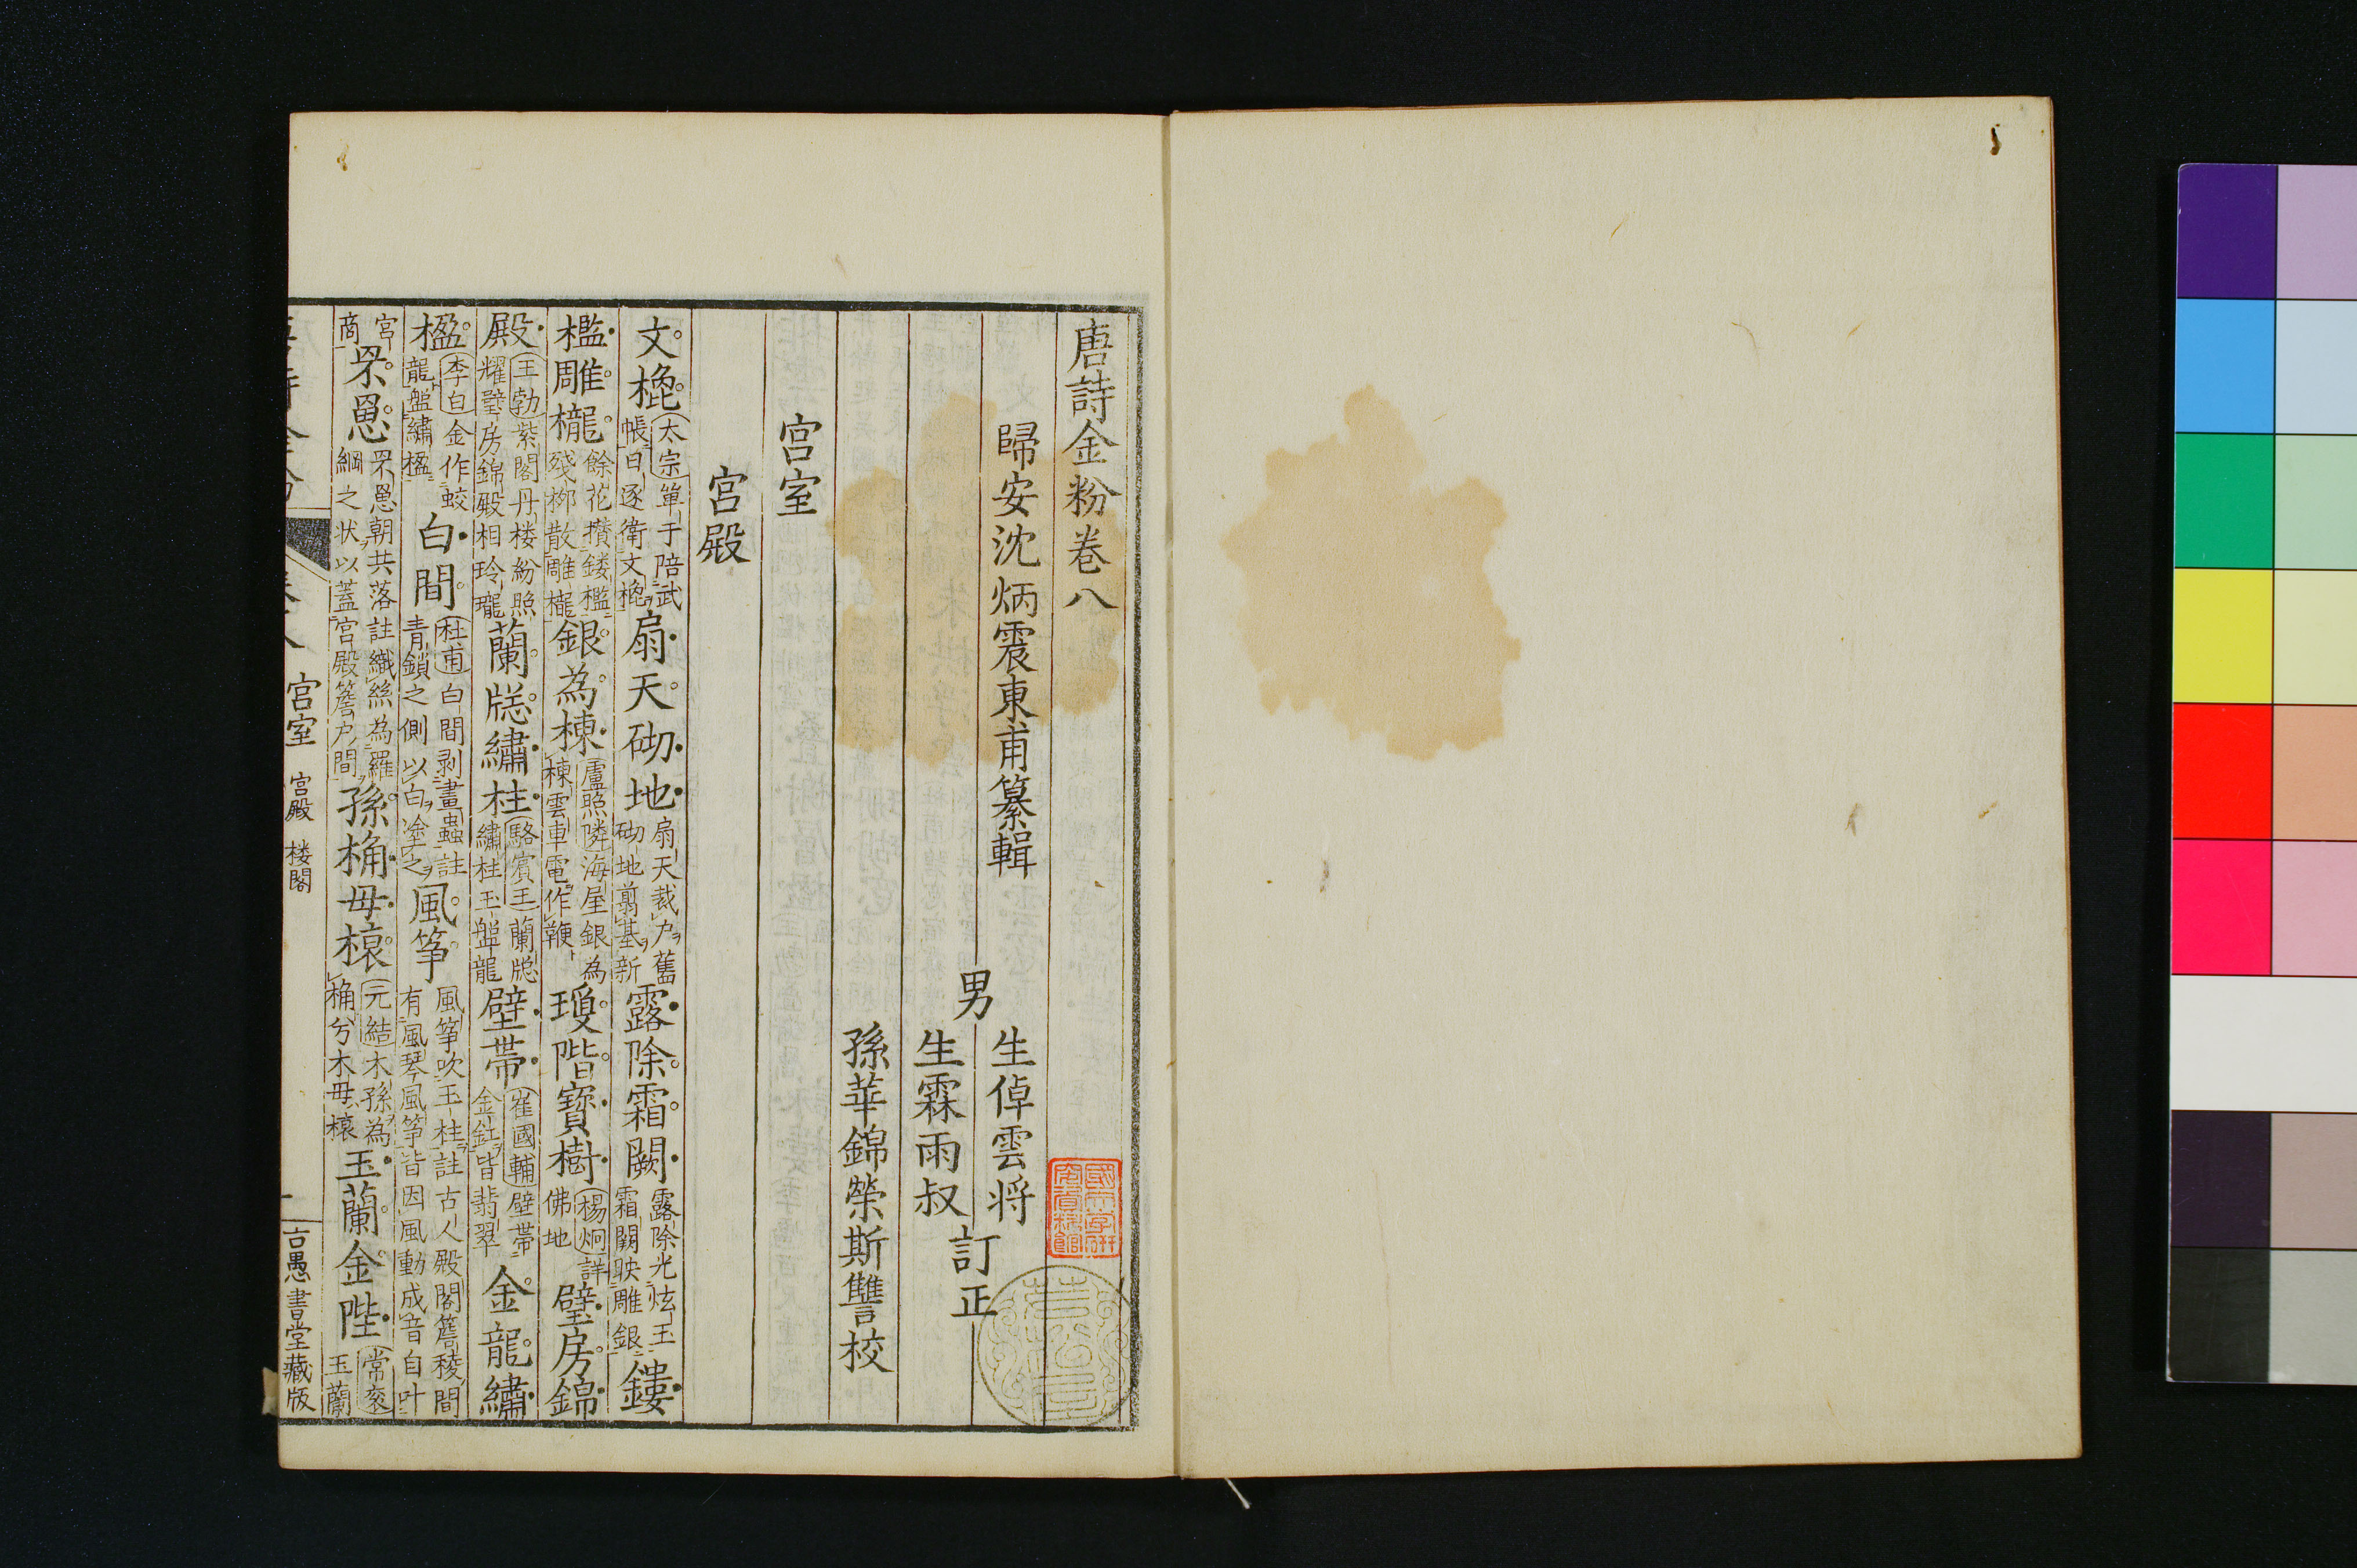 唐詩金粉卷八
歸安沈炳震東甫纂輯
男
生倬雲将
生霖雨叔
訂正
孫華錦榮斯讐校
宮室
宮殿
文㮰(太宗)單于陪武帳日逐衛文㮰扇天砌地扇天裁户舊砌地翦基新露除霜闕露除光炫玉霜闕映雕銀鏤
檻雕櫳餘花攢鏤檻殘栁散雕櫳銀為棟(盧照隣)海屋銀為棟雲車電作鞭瓊階寶樹(楊炯)詳佛地璧房錦
殿(王勃)紫閣丹楼紛照耀璧房錦殿相玲瓏蘭牎繡柱(駱賓王)蘭牎繡柱玉盤龍壁帯(崔國輔)壁帯金釭皆翡翠金龍繡
楹(李白)金作蛟龍盤繡楹白間(杜甫)白間剥畫蟲註青鎖之側以白塗之風筝風筝吹玉柱註古人殿閣簷稜間有風琴風筝皆因風動成音自叶
宮商罘罳罘罳朝共落註織絲為羅網之状以蓋宮殿簷户間孫桷母榱(元結)木孫為桷兮木母榱玉蘭金陛(常袞)玉蘭
宮室 宮殿 楼閣
古愚書堂藏版